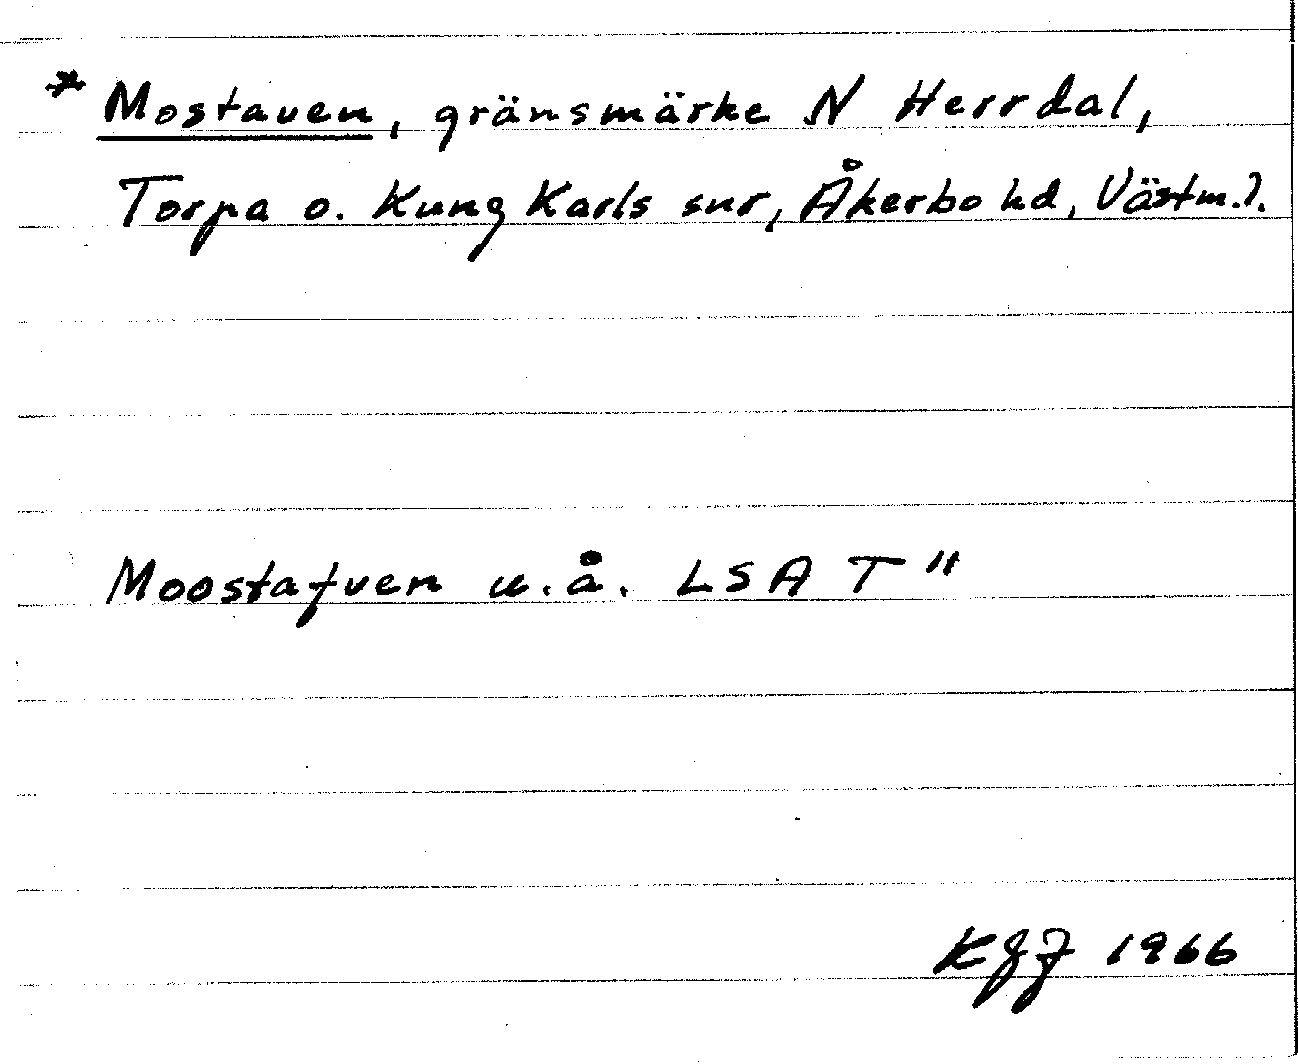 * Mostaven, gränsmärke N Herrdal,
Torpa o. Kung Karls snr, Åkerbo hd, Västm. l.
Moostafven u.å. LSA T"
KGJ 1966